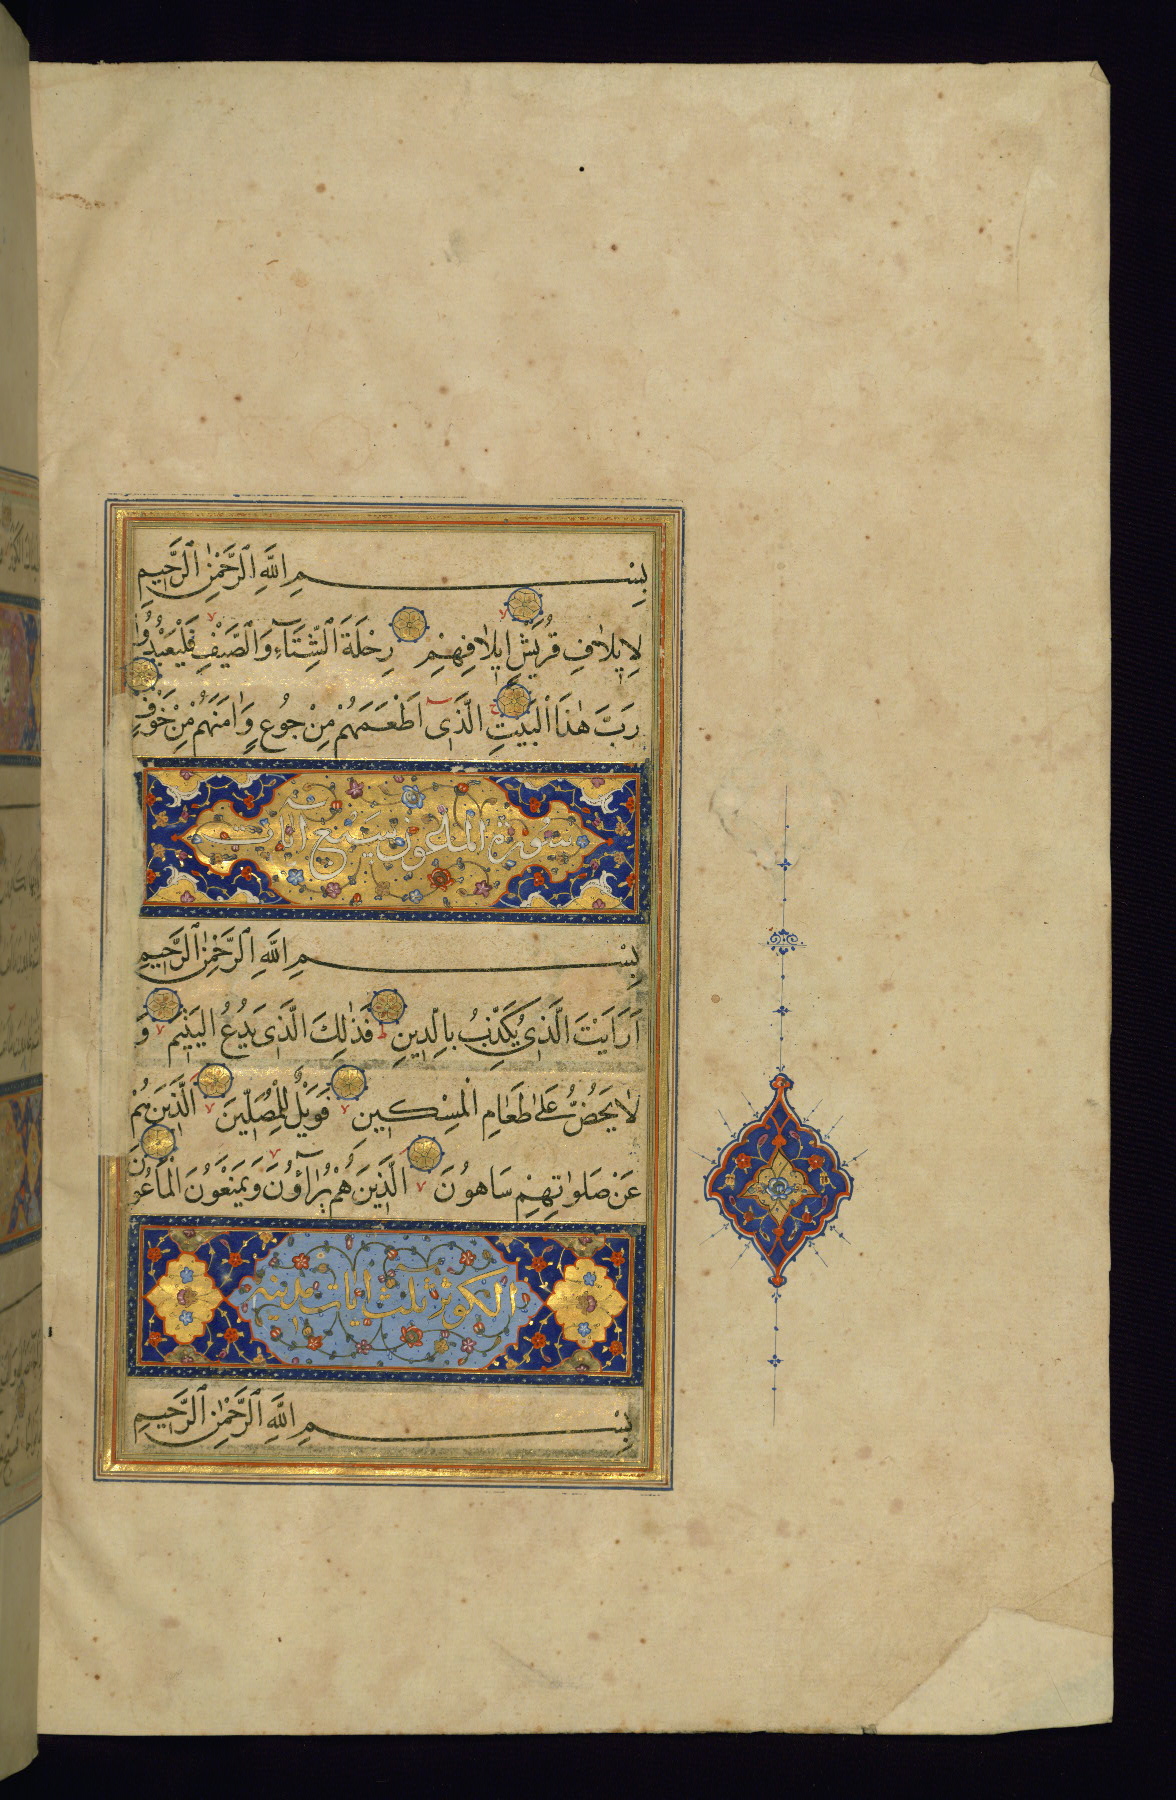 بِسْمِ اللَّهِ الرَّحْمٰنِ الرَّحِيمِ
لِاِيلَافِ قُرَيْشٍ اِيلَافِهِمْ رِحْلَةَ الشِّتَآءِ وَالصَّيْفِ فَلْيَعْبُدُوا
رَبَّ هٰذَا الْبَيْتِ الَّذِى اَطْعَمَهُمْ مِنْ جُوعٍ وَاٰمَنَهُمْ مِنْ خَوْفٍ
سورة الماعون سبع ايات
بِسْمِ اللَّهِ الرَّحْمٰنِ الرَّحِيمِ
اَرَاَيْتَ الَّذِى يُكَذِّبُ بِالدِّينِ فَذٰلِكَ الَّذِى يَدُعُّ الْيَتِيمَ وَ
لَا يَحُضُّ عَلٰى طَعَامِ الْمِسْكِينِ فَوَيْلٌ لِلْمُصَلِّينَ الَّذِينَ هُمْ
عَنْ صَلَوٰتِهِمْ سَاهُونَ الَّذِينَ هُمْ يُرَآؤُنَ وَيَمْنَعُونَ الْمَاعُونَ
الكوثر ثلث ايات مدنية
بِسْمِ اللَّهِ الرَّحْمٰنِ الرَّحِيمِ